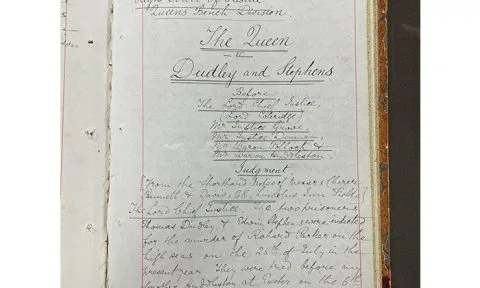 High Court of Justice
Queens Bench Division.
The Queen
v
Dudley and Stephens
Before
The Lord Chief Justice,
(Lord Coleridge)
Mr Justice Grove,
Mr Justice Denman,
Mr Baron Pollock &
Mr Baron Huddleston.
Judgment
[From the Shorthand Notes of Messrs
& 68 Lincolns Inn Fields]
The Lord Chief Justice The two prisoners
Thomas Dudley & Edwin Stephens were indicted
for the murder of Richard Parker on the
high seas on the 25th of July in the
present year. They were tried before my
Huddleston at Exeter on the 6th